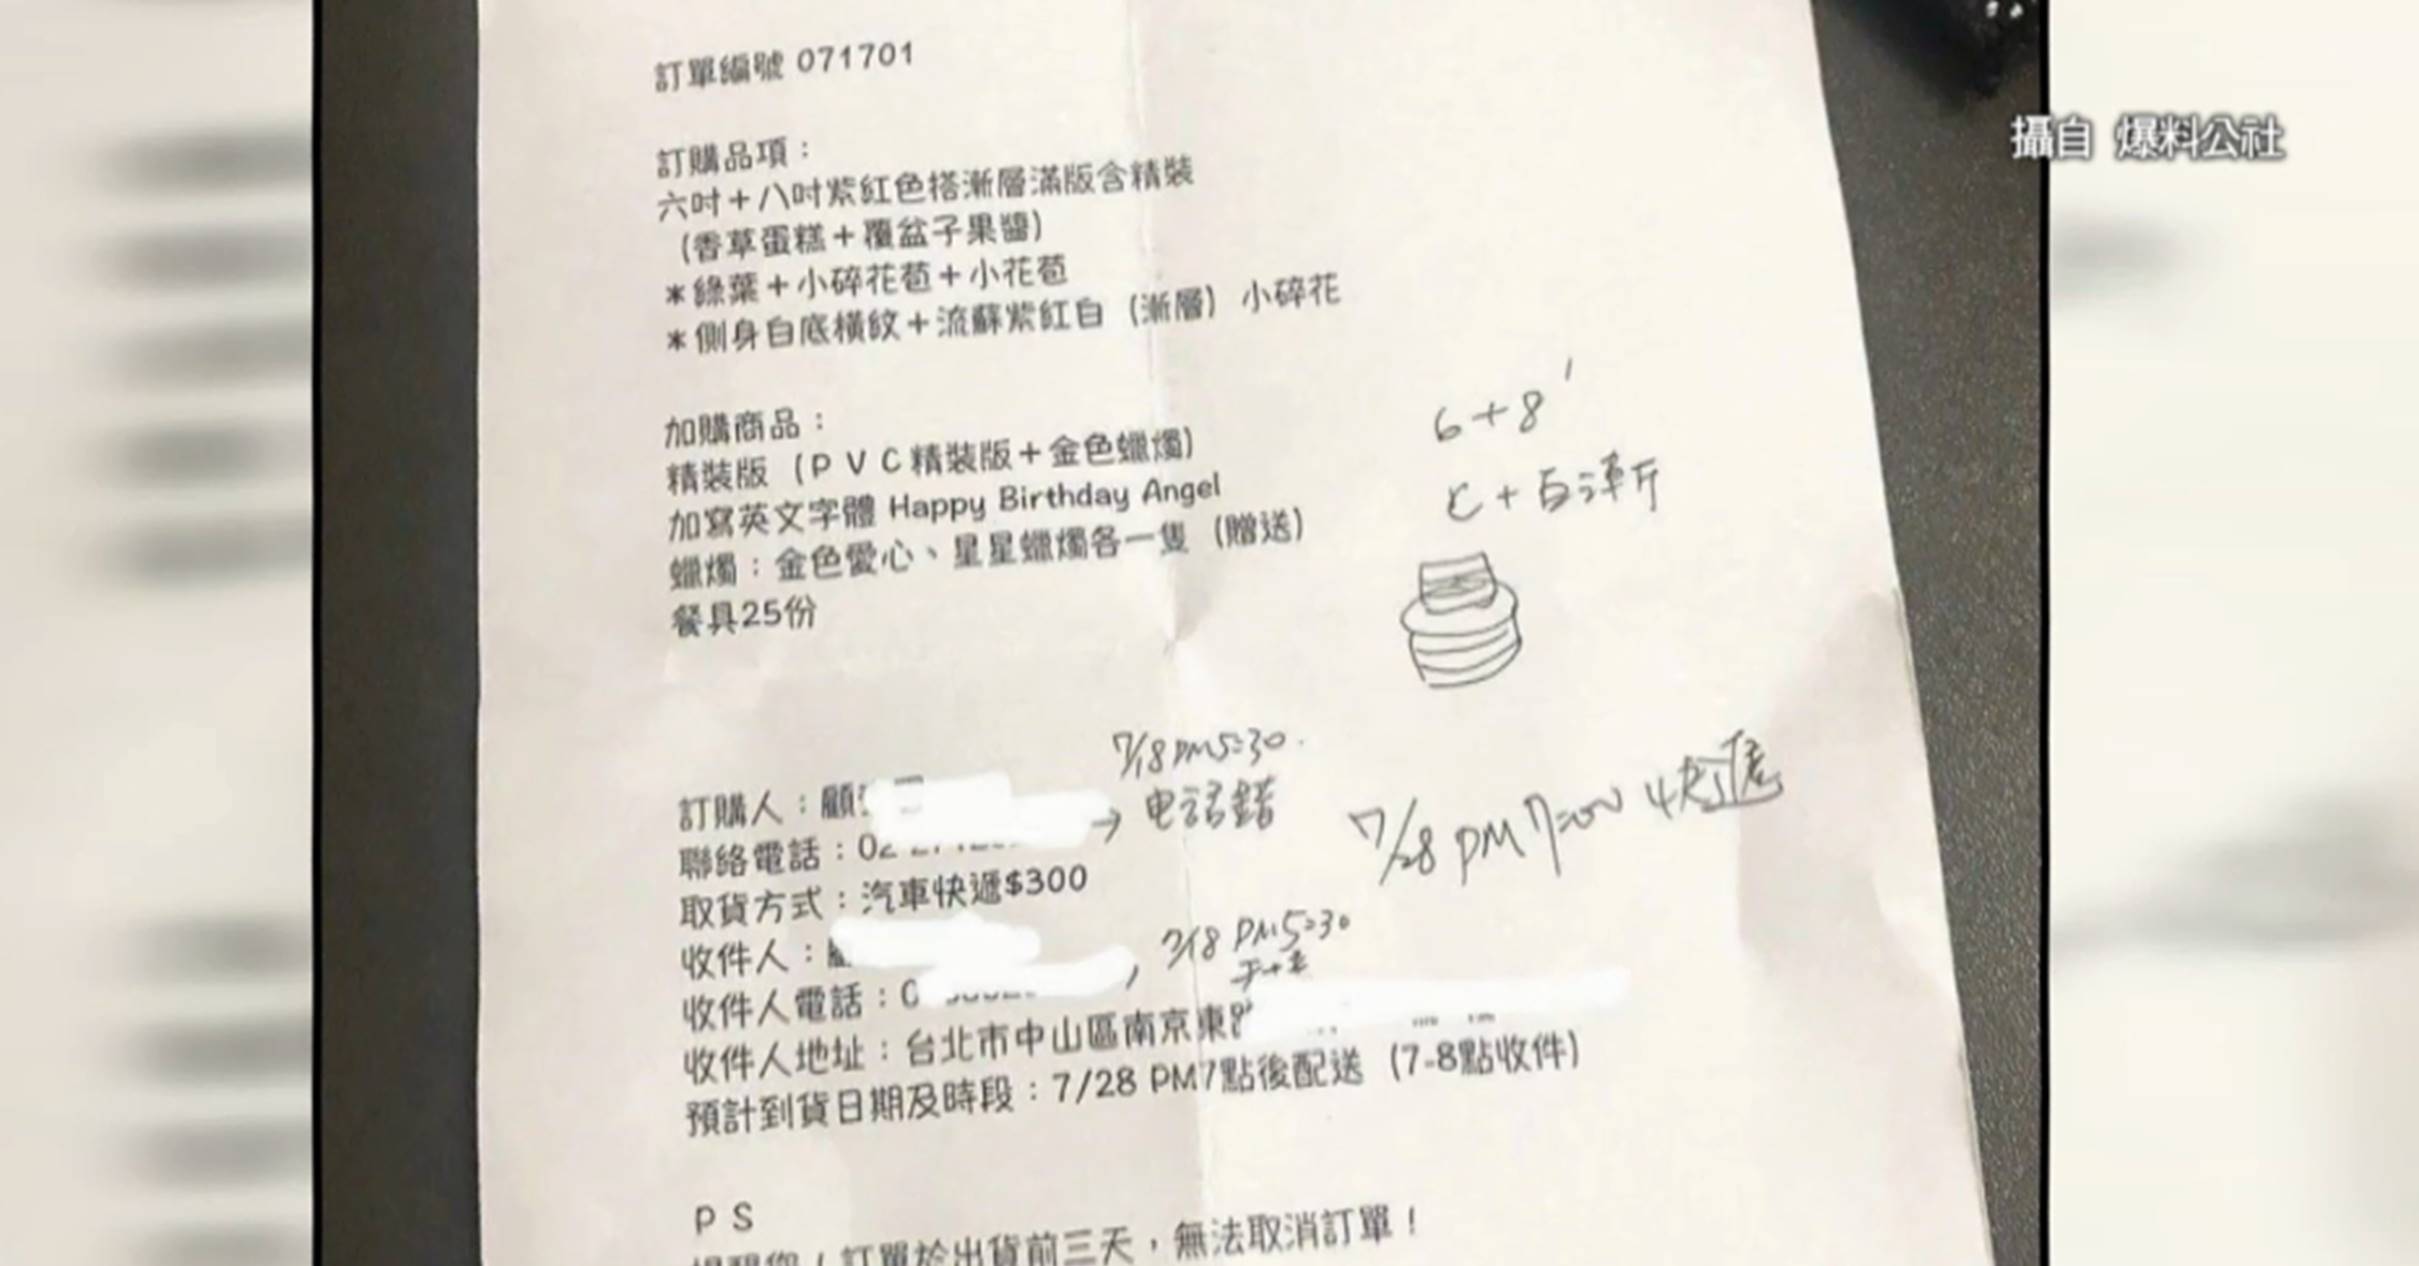 訂單編號 071701
攝自 爆料公社
訂購品項：
六吋＋八吋紫紅色搭漸層滿版含精裝
(香草蛋糕＋覆盆子果醬)
＊綠葉＋小碎花苞＋小花苞
＊側身白底橫紋＋流蘇紫紅白（漸層）小碎花
加購商品：
精裝版（ＰＶＣ精裝版＋金色蠟燭）
加寫英文字體 Happy Birthday Angel
蠟燭：金色愛心、星星蠟燭各一隻（贈送）
餐具25份
6+8'
C+百漸
7/18 PM5:30
電話錯
7/28 PM7:00
快遞
訂購人：顧
聯絡電話：02
取貨方式：汽車快遞$300
收件人：
7/18 PM5:30
收件人電話：0
收件人地址：台北市中山區南京東
預計到貨日期及時段：7/28 PM7點後配送（7-8點收件）
ＰＳ
訂單於出貨前三天，無法取消訂單！